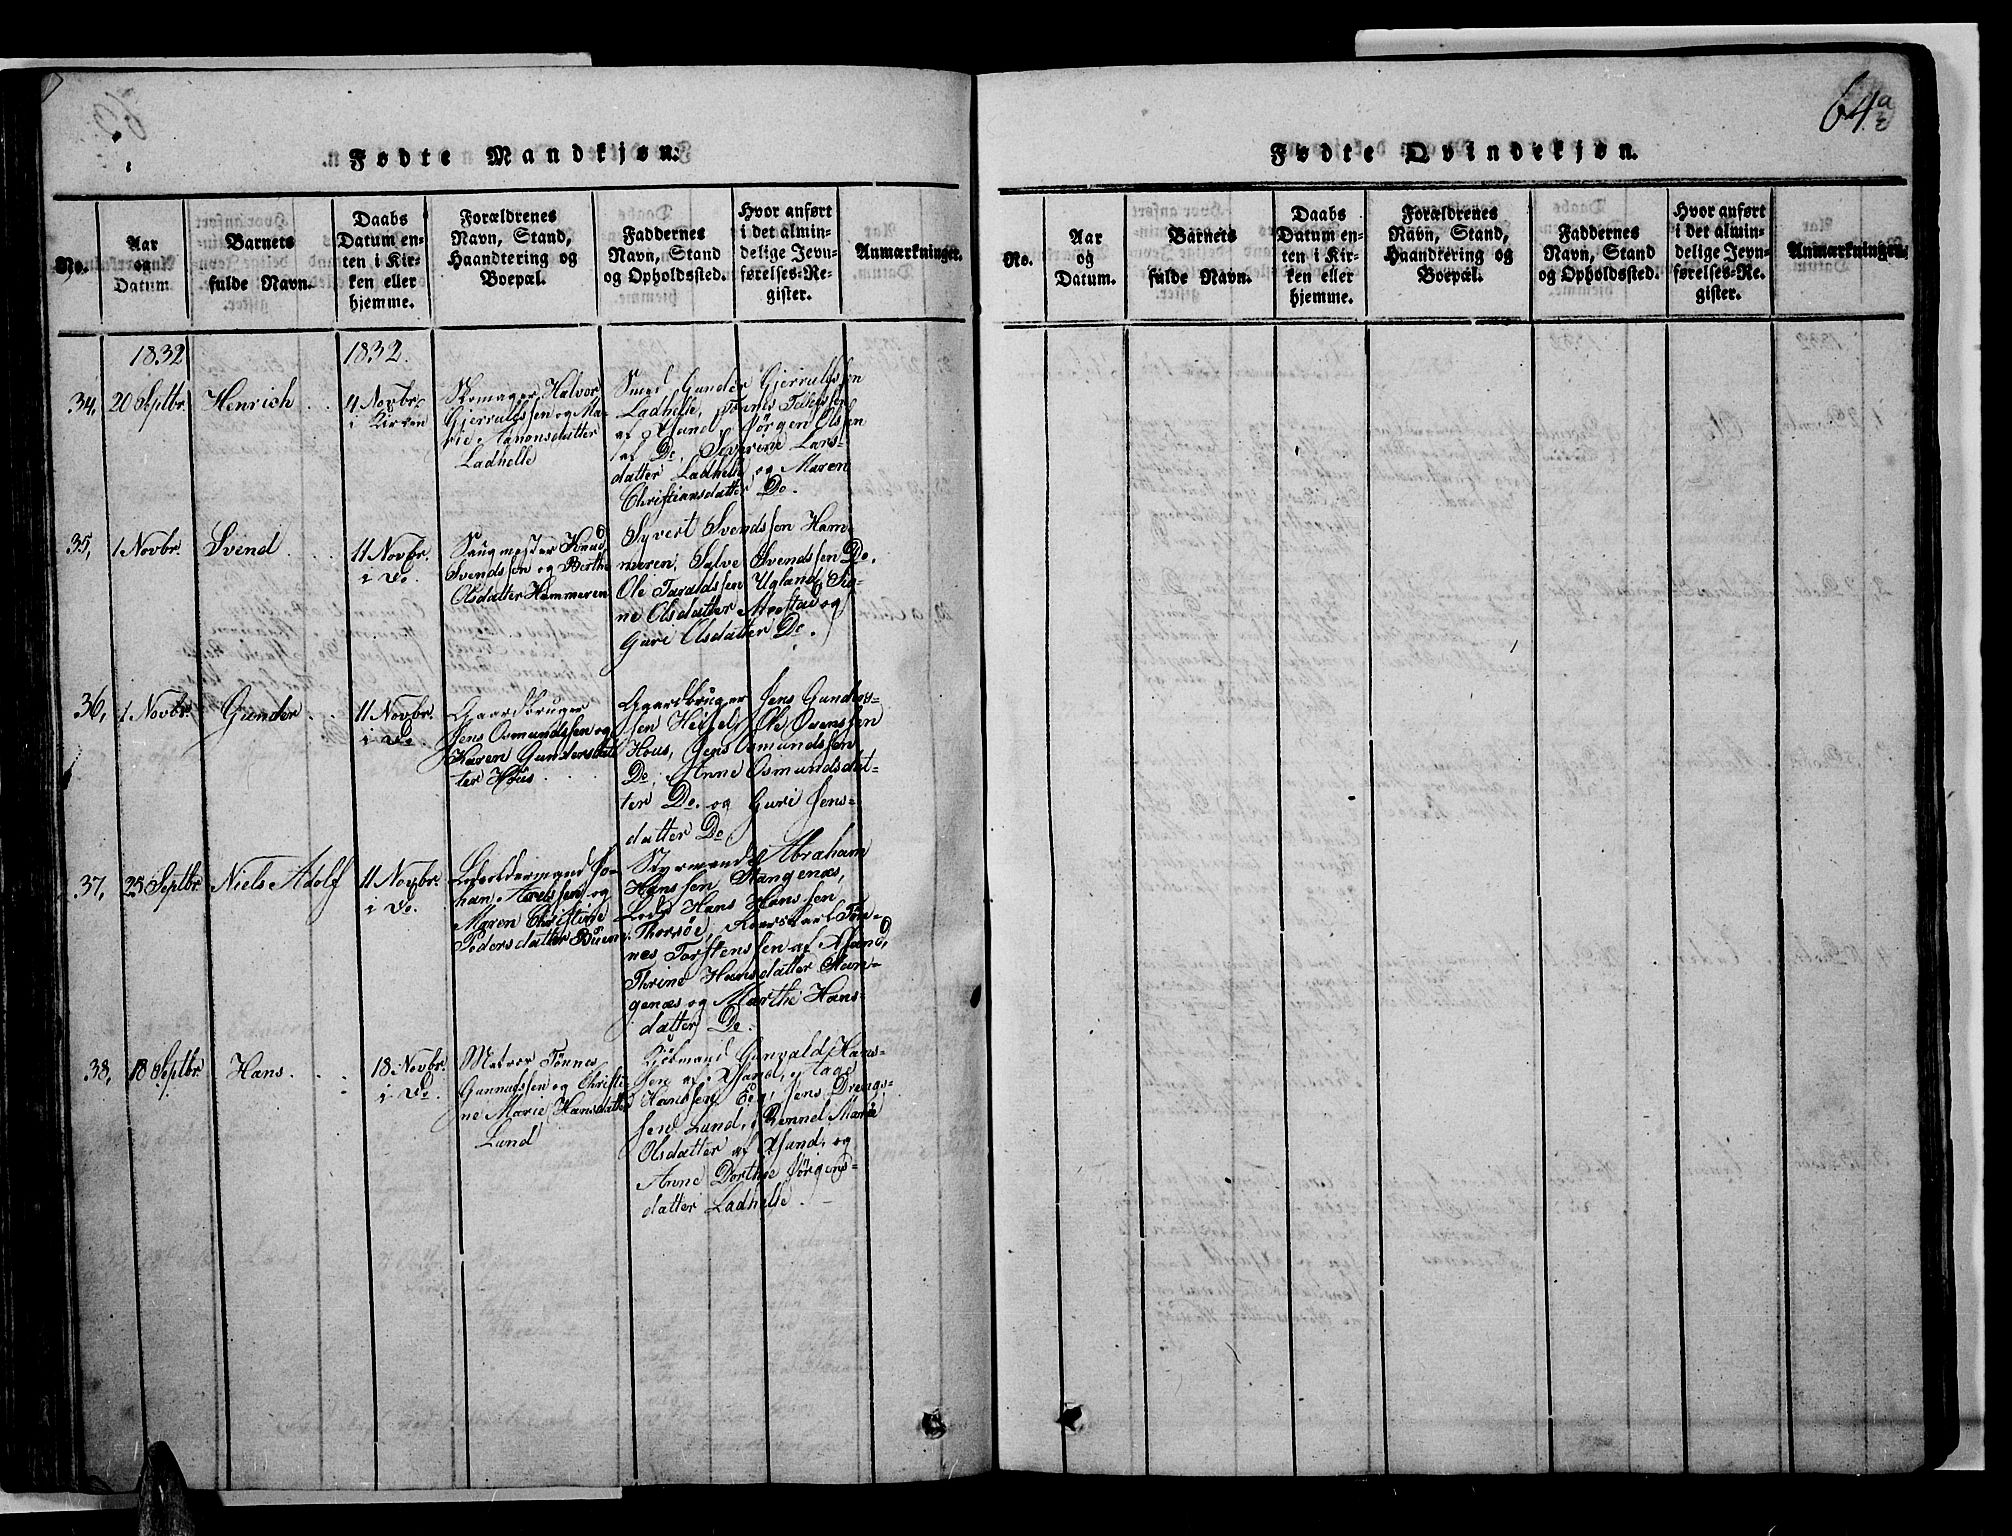 64 a
Fødte Mandkjøn.
No.
Aar
og
Datum
Barnets
fulde Navn.
Daabs
Datum en-
ten i Kir-
ken eller
hjemme.
Forældrenes
Navn, Stand,
Haandtering og
Boepæl.
Faddernes
Navn, Stand
og Opholdssted.
Hvor anført
i det almin-
delige Jevn-
førelses-Re-
gister.
Anmærkninger.
1832
1832.
34, 20 Septbr.
Henrich
4 Novbr.
i Kirken
Skomager Halvor
Gjerruldssen og Ma-
rie Aanonsdatter
Ladhelle
Smed Gunder Gjerruldssen
Ladhelle, Tønnes
Jørgen Olsen
af Do, Severine Lars-
datter Ladhelle og Maren
Christiansdatter Do.
35, 1 Novbr.
Svend
11 Novbr.
i Do.
Saugmester Knud
Svendssen og Berthe
Olsdatter Hammeren
Syvert Svendssen Ham-
meren, Salve Svendssen Do.
Ole Taraldssen Ugland, Sig-
ne Olsdatter og
Guri Olsdatter Do.
36, 1 Novbr.
Gunder
11 Novbr.
i Do
Gaardbruger
Jens Osmundssen og
Karen Gundersdat-
ter Hous
Gaardbruger Jens Gunders-
sen Ole Svenssen
Hous, Jens Osmundssen
Do, Anne Osmundsdat-
ter Do. og Guri Jens-
datter Do
37, 25 Septbr.
Niels Adolf
11 Novbr.
i Do.
Lodsoldermand Jo-
han Axelssen og
Maren Christine
Pedersdatter Buen
Styrmand Abraham
Hanssen Stangenæs,
Lods Hans Hanssen
Thorsøe,
nes Torstenssen af
Thrine Hansdatter Stan-
genæs og Marthe Hans-
datter Do.
38, 18 Septbr.
Hans
18 Novbr.
i Do.
Matros Tønnes
Gunnufssen og Christi-
ne Marie Hansdatter
Lund
Kjøbmand Gunvald Hans-
sen af Aage
Hanssen Eeg, Jens Drengs-
sen Lund, Rønnel Marie
Olsdatter af og
Anne Dorthe Jørgens-
datter Ladhelle.
Fødte Qvindekjøn.
No.
Aar
og
Datum.
Barnets
fulde Navn.
Daabs
Datum en-
ten i Kir-
ken eller
hjemme.
Forældrenes
Navn, Stand,
Haandtering og
Boepæl.
Faddernes
Navn, Stand
og Opholdssted.
Hvor anført
i det almin-
delige Jevn-
førelses-Re-
gister.
Anmærkninger.